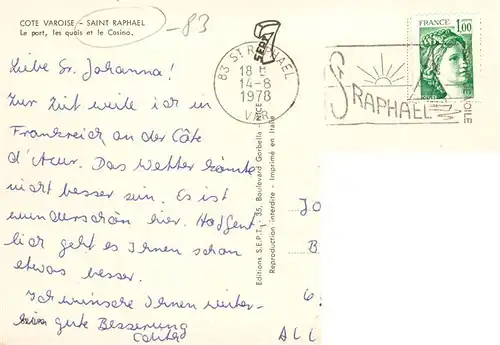 COTE VAROISE - SAINT RAPHAEL
Le port, les quais et le Casino.
-83
SEPT
83 ST RAPHAEL
18 H
14-8
1978
VAR
St RAPHAEL
FRANCE
1,00
Liebe Sr. Johanna!
Zur Zeit weile ich in
Frankreich an der Côte
d'Azur. Das Wetter könnte
nicht besser sein. Es ist
wunderschön hier. Hoffent
lich geht es Ihnen schon
etwas besser.
Ich wünsche Ihnen weiter-
hin gute Besserung
Editions S.E.P.T., 35, Boulevard Gorbella - NICE
Reproduction interdite - Imprimé en Italie
JO
B
6
ALL